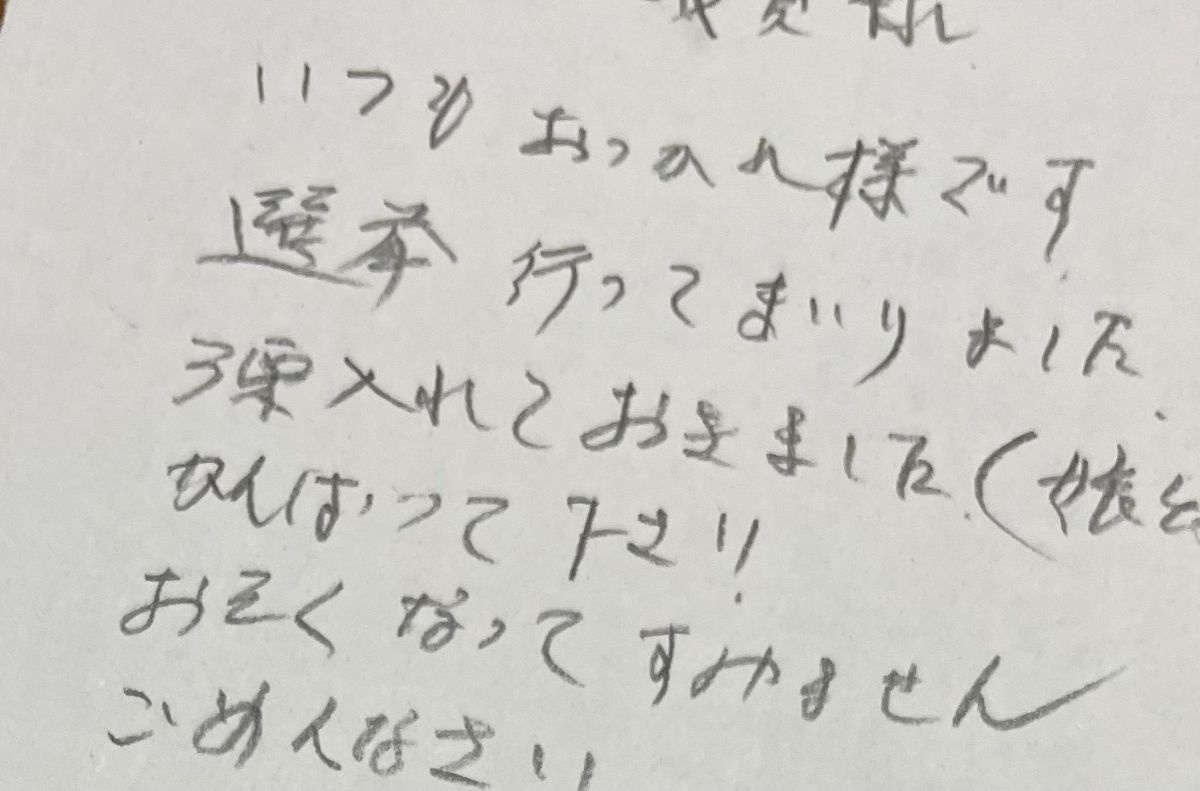 様
いつもおつかれ様です
選挙行ってまいりました
3票入れておきました（娘と
がんばって下さい！
おそくなってすみません
ごめんなさい